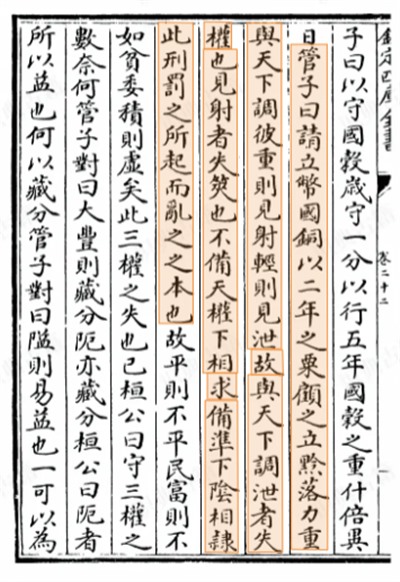 欽定四庫全書
卷二十二
子曰以守國穀歲守一分以行五年國穀之重什倍異
日管子曰請立幣國銅以二年之粟顧之立黔落力重
與天下調彼重則見射輕則見泄故與天下調泄者失
權也見射者失筴也不備天權下相求備準下陰相隸
此刑罰之所起而亂之之本也故平則不平民富則不
如貧委積則虛矣此三權之失也已桓公曰守三權之
數奈何管子對曰大豐則藏分阨亦藏分桓公曰阨者
所以益也何以藏分管子對曰隘則易益也一可以為